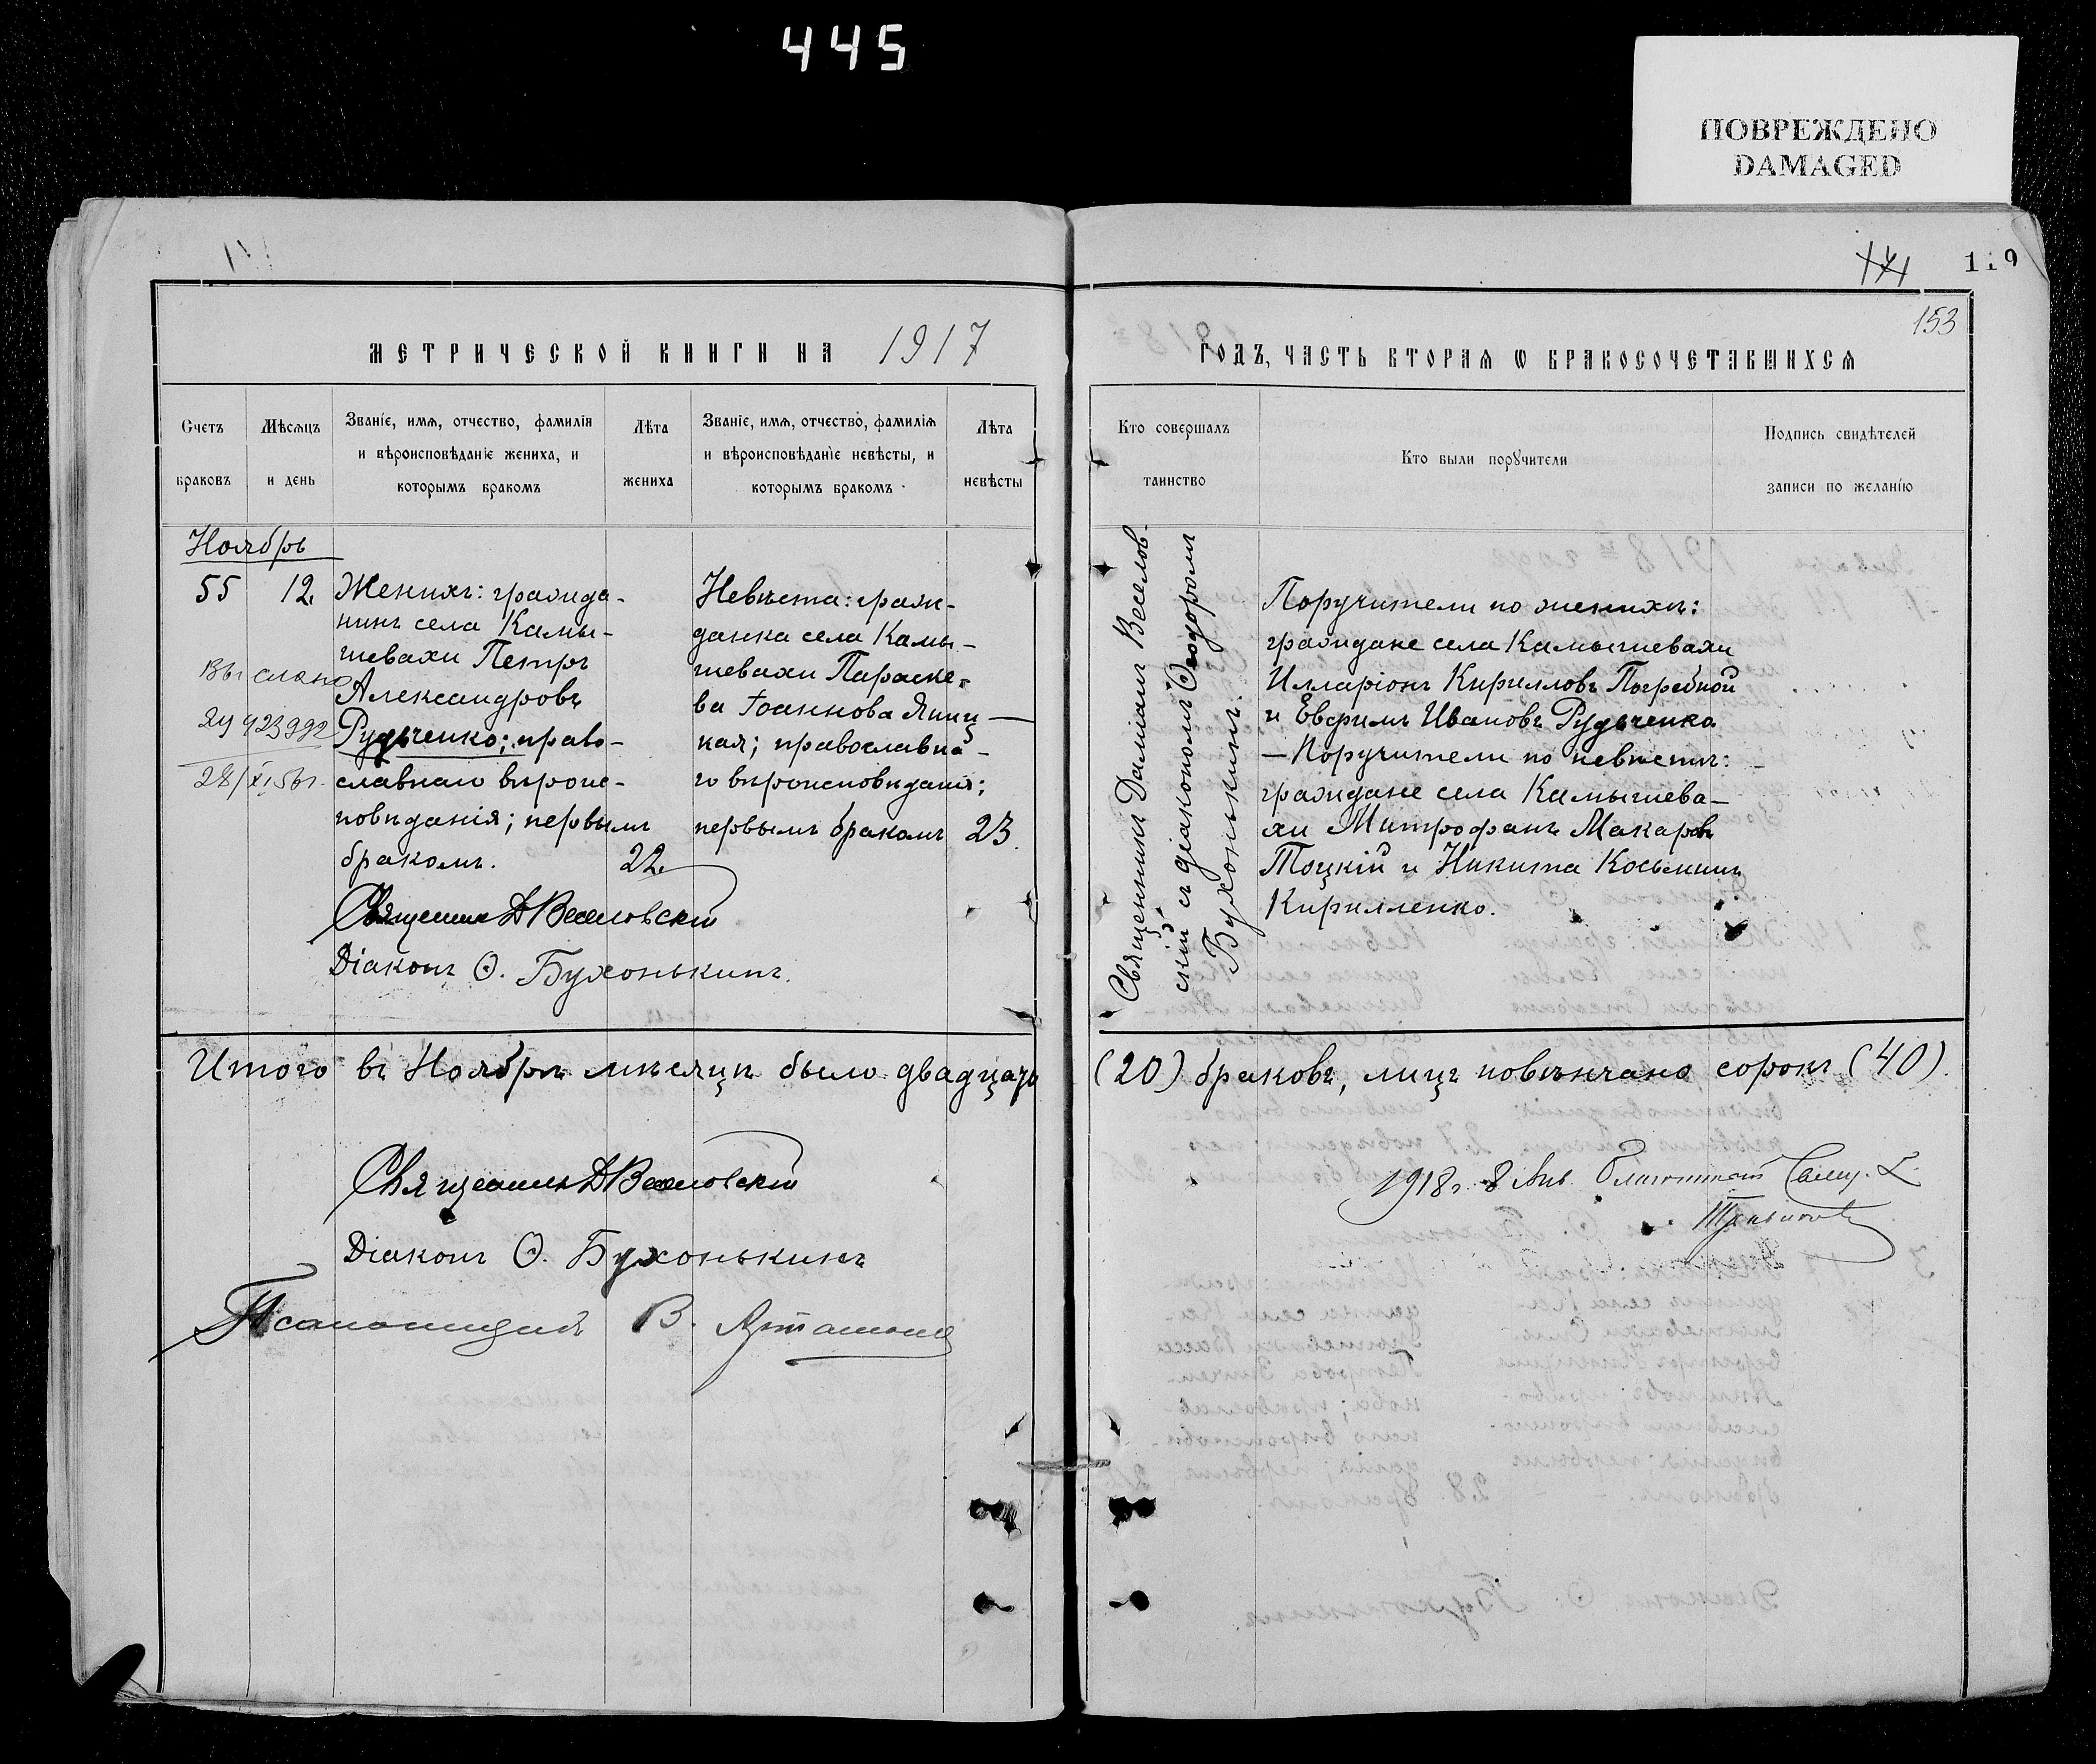 445
ПОВРЕЖДЕНО
DAMAGED
119
153
МЕТРИЧЕСКОЙ КНИГИ НА 1917
ГОДЪ, ЧАСТЬ ВТОРАЯ Ѡ БРАКОСОЧЕТАВШИХСЯ
Счетъ браковъ
Мѣсяцъ и день
Званіе, имя, отчество, фамилія
и вѣроисповѣданіе жениха, и
которымъ бракомъ
Лѣта жениха
Званіе, имя, отчество, фамилія
и вѣроисповѣданіе невѣсты, и
которымъ бракомъ
Лѣта невѣсты
Кто совершалъ таинство
Кто были поручители
Подпись свидѣтелей записи по желанію
Ноябрь
55 12.
Женихъ: гражда-
нинъ села Камы-
шевахи Петръ
Александровъ
Рудьченко; право-
славнаго вѣроис-
повѣданія; первымъ
бракомъ. 22
Выслано
28/XI 56г.
Невѣста: граж-
данка села Камы-
шевахи Параске-
ва Іоаннова Яниц-
кая; православна-
го вѣроисповѣданія;
первымъ бракомъ 23.
Священникъ Д Веселовскій
Діаконъ Ѳ. Бухонькинъ.
Священникъ Даміанъ Веселов-
скій съ діакономъ Ѳеодоромъ
Бухонькинъ.
Поручители по женихѣ:
граждане села Камышевахи
Илларіонъ Кирилловъ Погребной
и Евфимъ Ивановъ Рудьченко
— Поручители по невѣстѣ:
граждане села Камышева-
хи Митрофанъ Макаровъ
Тоцкій и Никита Косьминъ
Кирилленко.
Итого въ Ноябрѣ мѣсяцѣ было двадцать (20) браковъ, лицъ повѣнчано сорокъ (40).
Священникъ Д Веселовскій
Діаконъ Ѳ. Бухонькинъ
Псаломщикъ В.
1918г. 8 Янв. Благочинный Свящ.